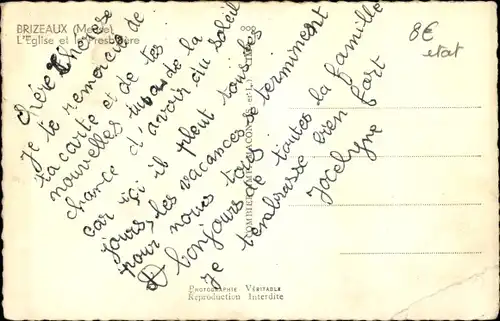 BRIZEAUX (Meuse)
L'Eglise et le Presbytère
8€
etat
Chère Thérèse
Je te remercies de
ta carte et de tes
nouvelles tu as de la
chance d'avoir du soleil
car ici il pleut tous les
jours, les vacances se terminent
pour nous tous
bonjours de toutes la famille
Je t'embrasse bien fort
Jocelyne
COMBIER IMP. MACON (S.-et-L.)
PHOTOGRAPHIE VÉRITABLE
Reproduction Interdite